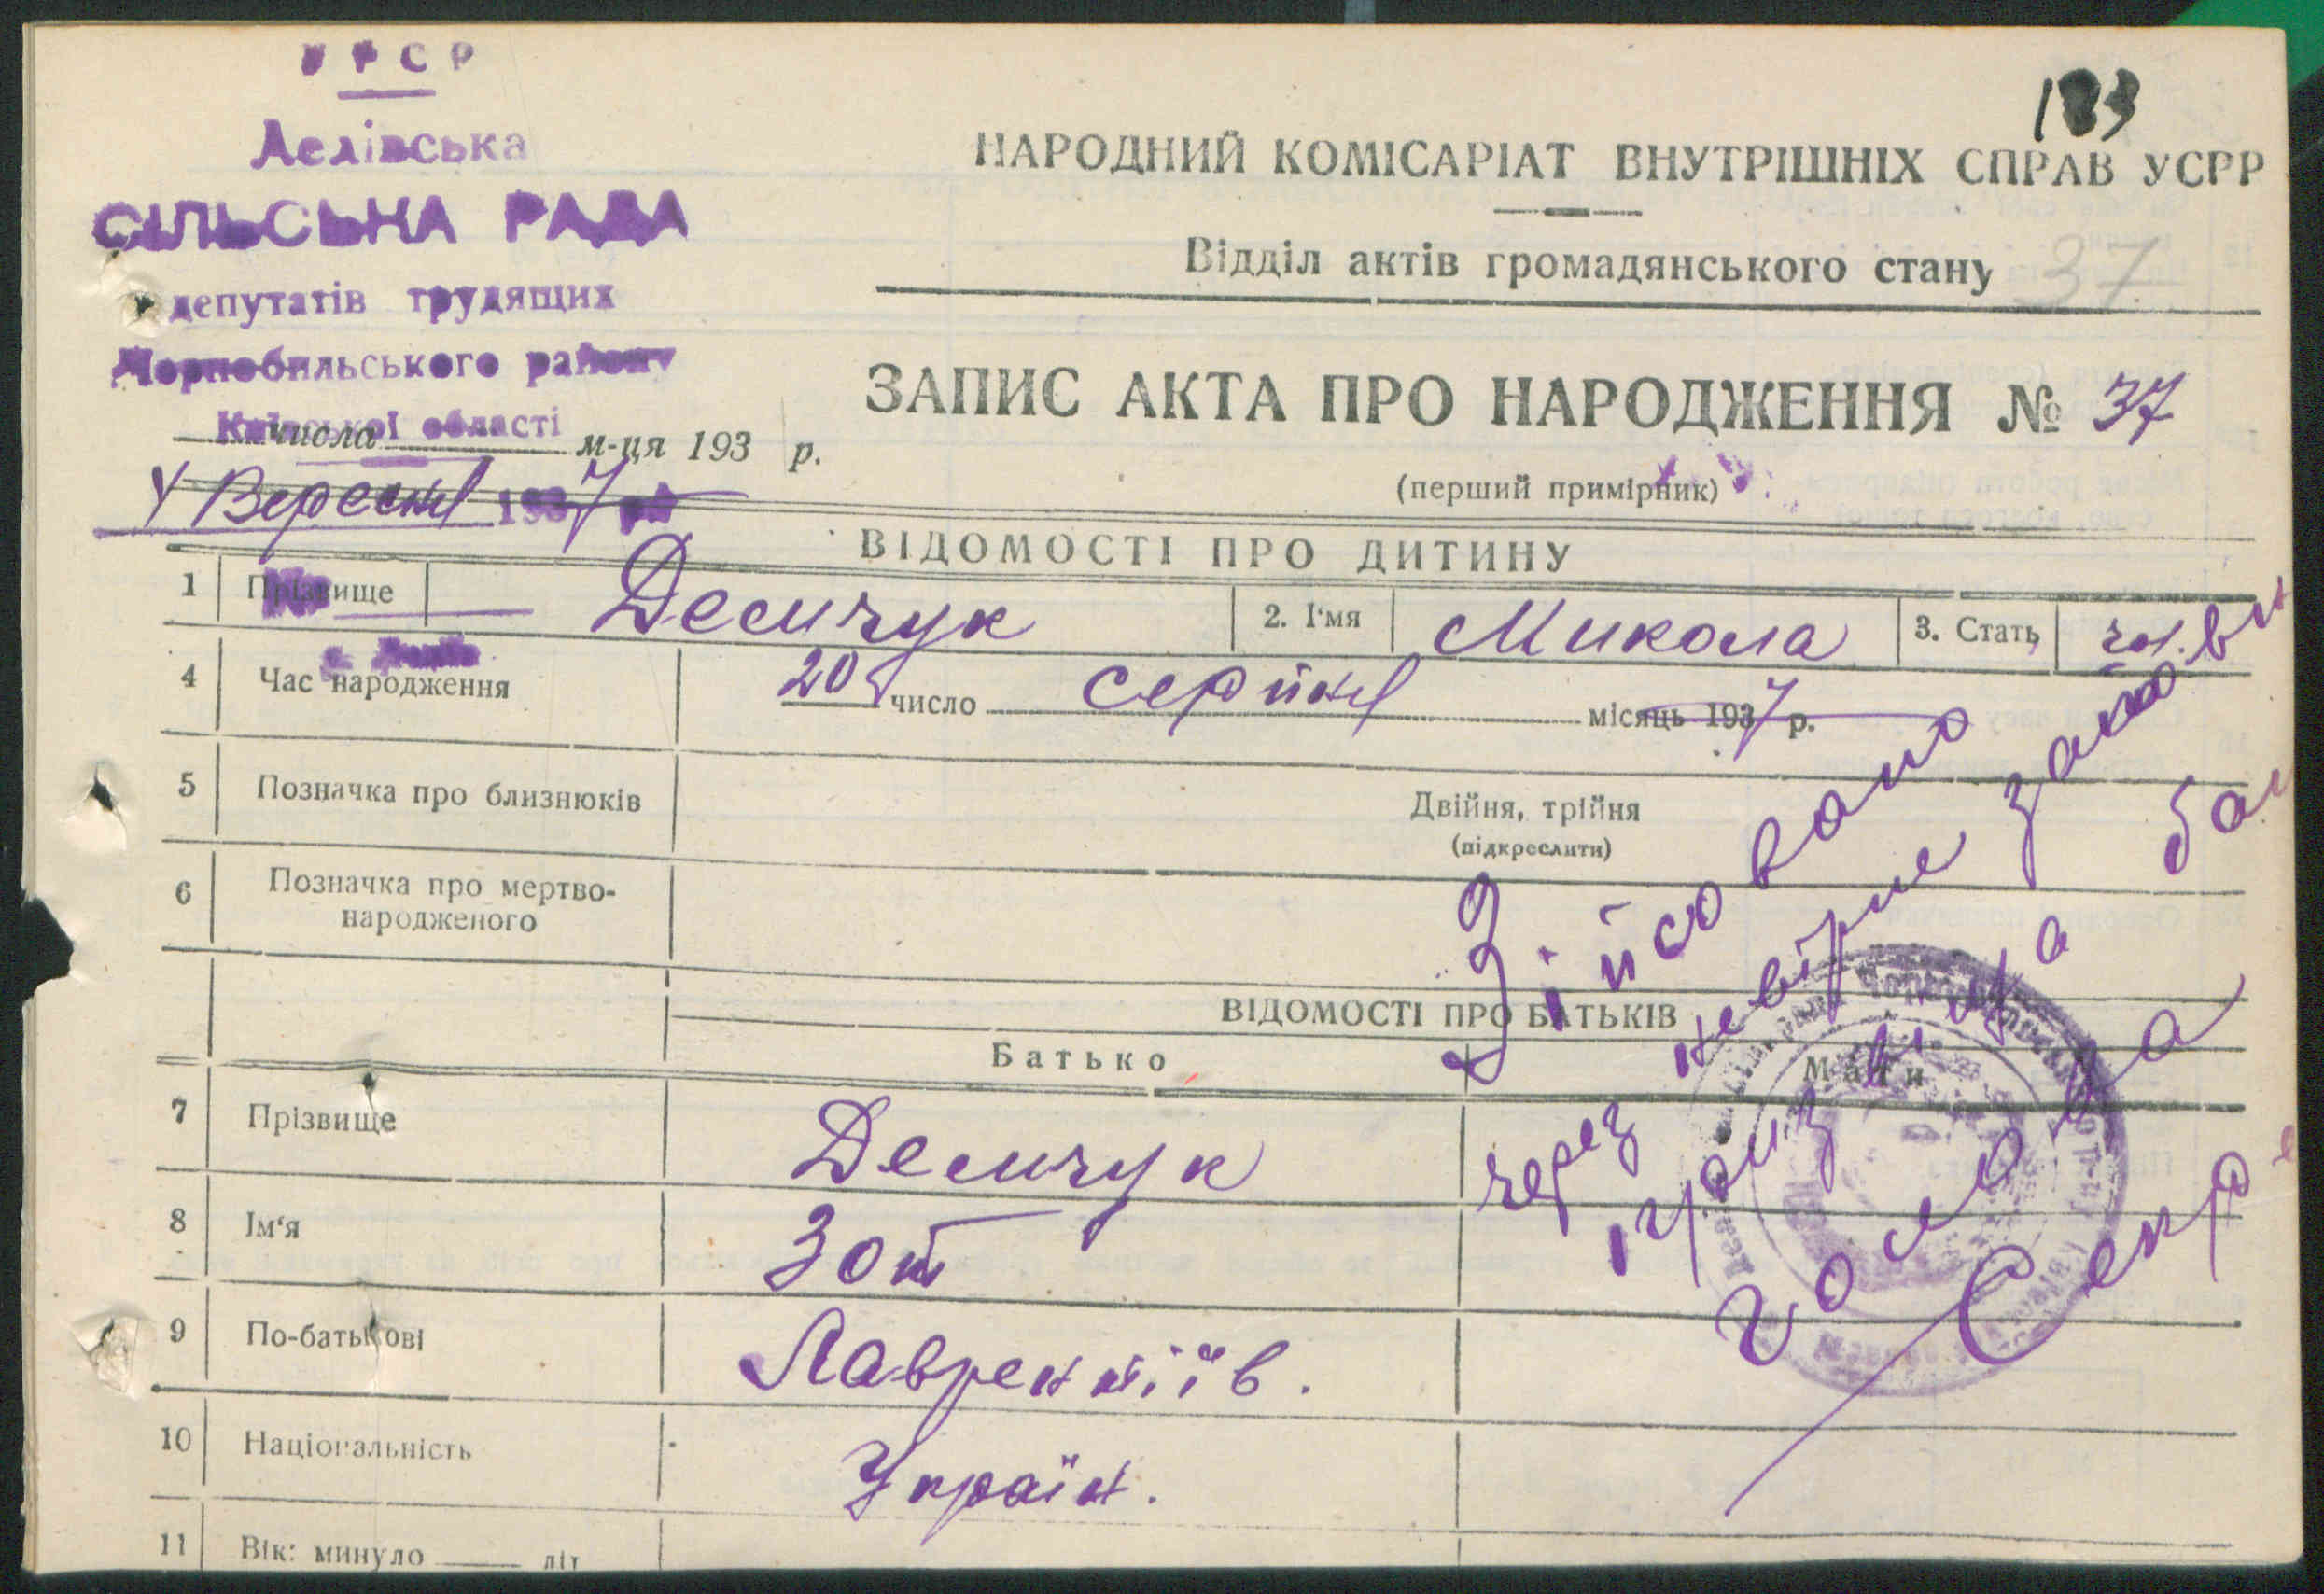 УРСР
Лелівська
СІЛЬСЬКА РАДА
депутатів трудящих
Чорнобильського району
Київської області
числа м-ця 193 р.
4 Вересня 1937 р.
183
НАРОДНИЙ КОМІСАРІАТ ВНУТРІШНІХ СПРАВ УСРР
Відділ актів громадянського стану 37
ЗАПИС АКТА ПРО НАРОДЖЕННЯ № 37
(перший примірник)
ВІДОМОСТІ ПРО ДИТИНУ
1 Прізвище Демчук 2. І'мя Микола 3. Стать чол.
4 Час народження 20 число серпня місяць 1937 р.
5 Позначка про близнюків Двійня, трійня
(підкреслити)
6 Позначка про мертво-
народженого
ВІДОМОСТІ ПРО БАТЬКІВ
Батько Мати
7 Прізвище Демчук
8 Ім'я Зот
9 По-батькові Лаврентіїв.
10 Національність Україн.
11 Вік: минуло літ
Зіпсовано
через невірне
Секр